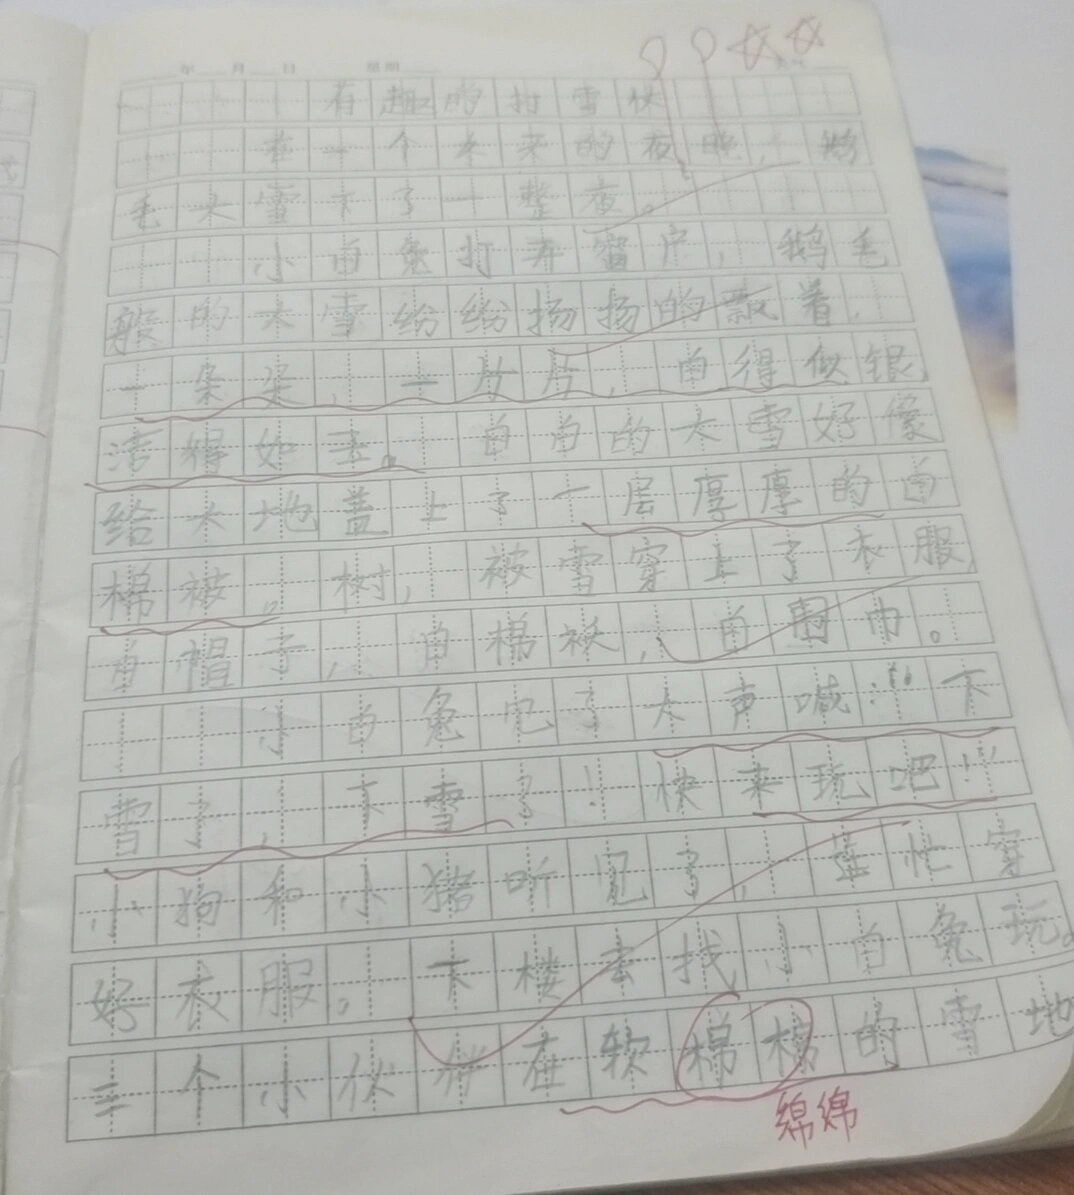 年 月 日 星期
有趣的打雪伏
在一个冬天的夜晚，鹅
毛大雪下了一整夜。
小白兔打开窗户，鹅毛
般的大雪纷纷扬扬的飘着，
一朵朵，一片片，白得似银，
洁得如玉。白白的大雪好像
给大地盖上了一层厚厚的白
棉被。树，被雪穿上了衣服，
白帽子，白棉袄，白围巾。
小白兔见了大声喊：“下
雪了，下雪了！快来玩吧！”
小狗和小猪听见了，连忙穿
好衣服。下楼去找小白兔玩。
三个小伙伴在软棉棉的雪地
绵绵